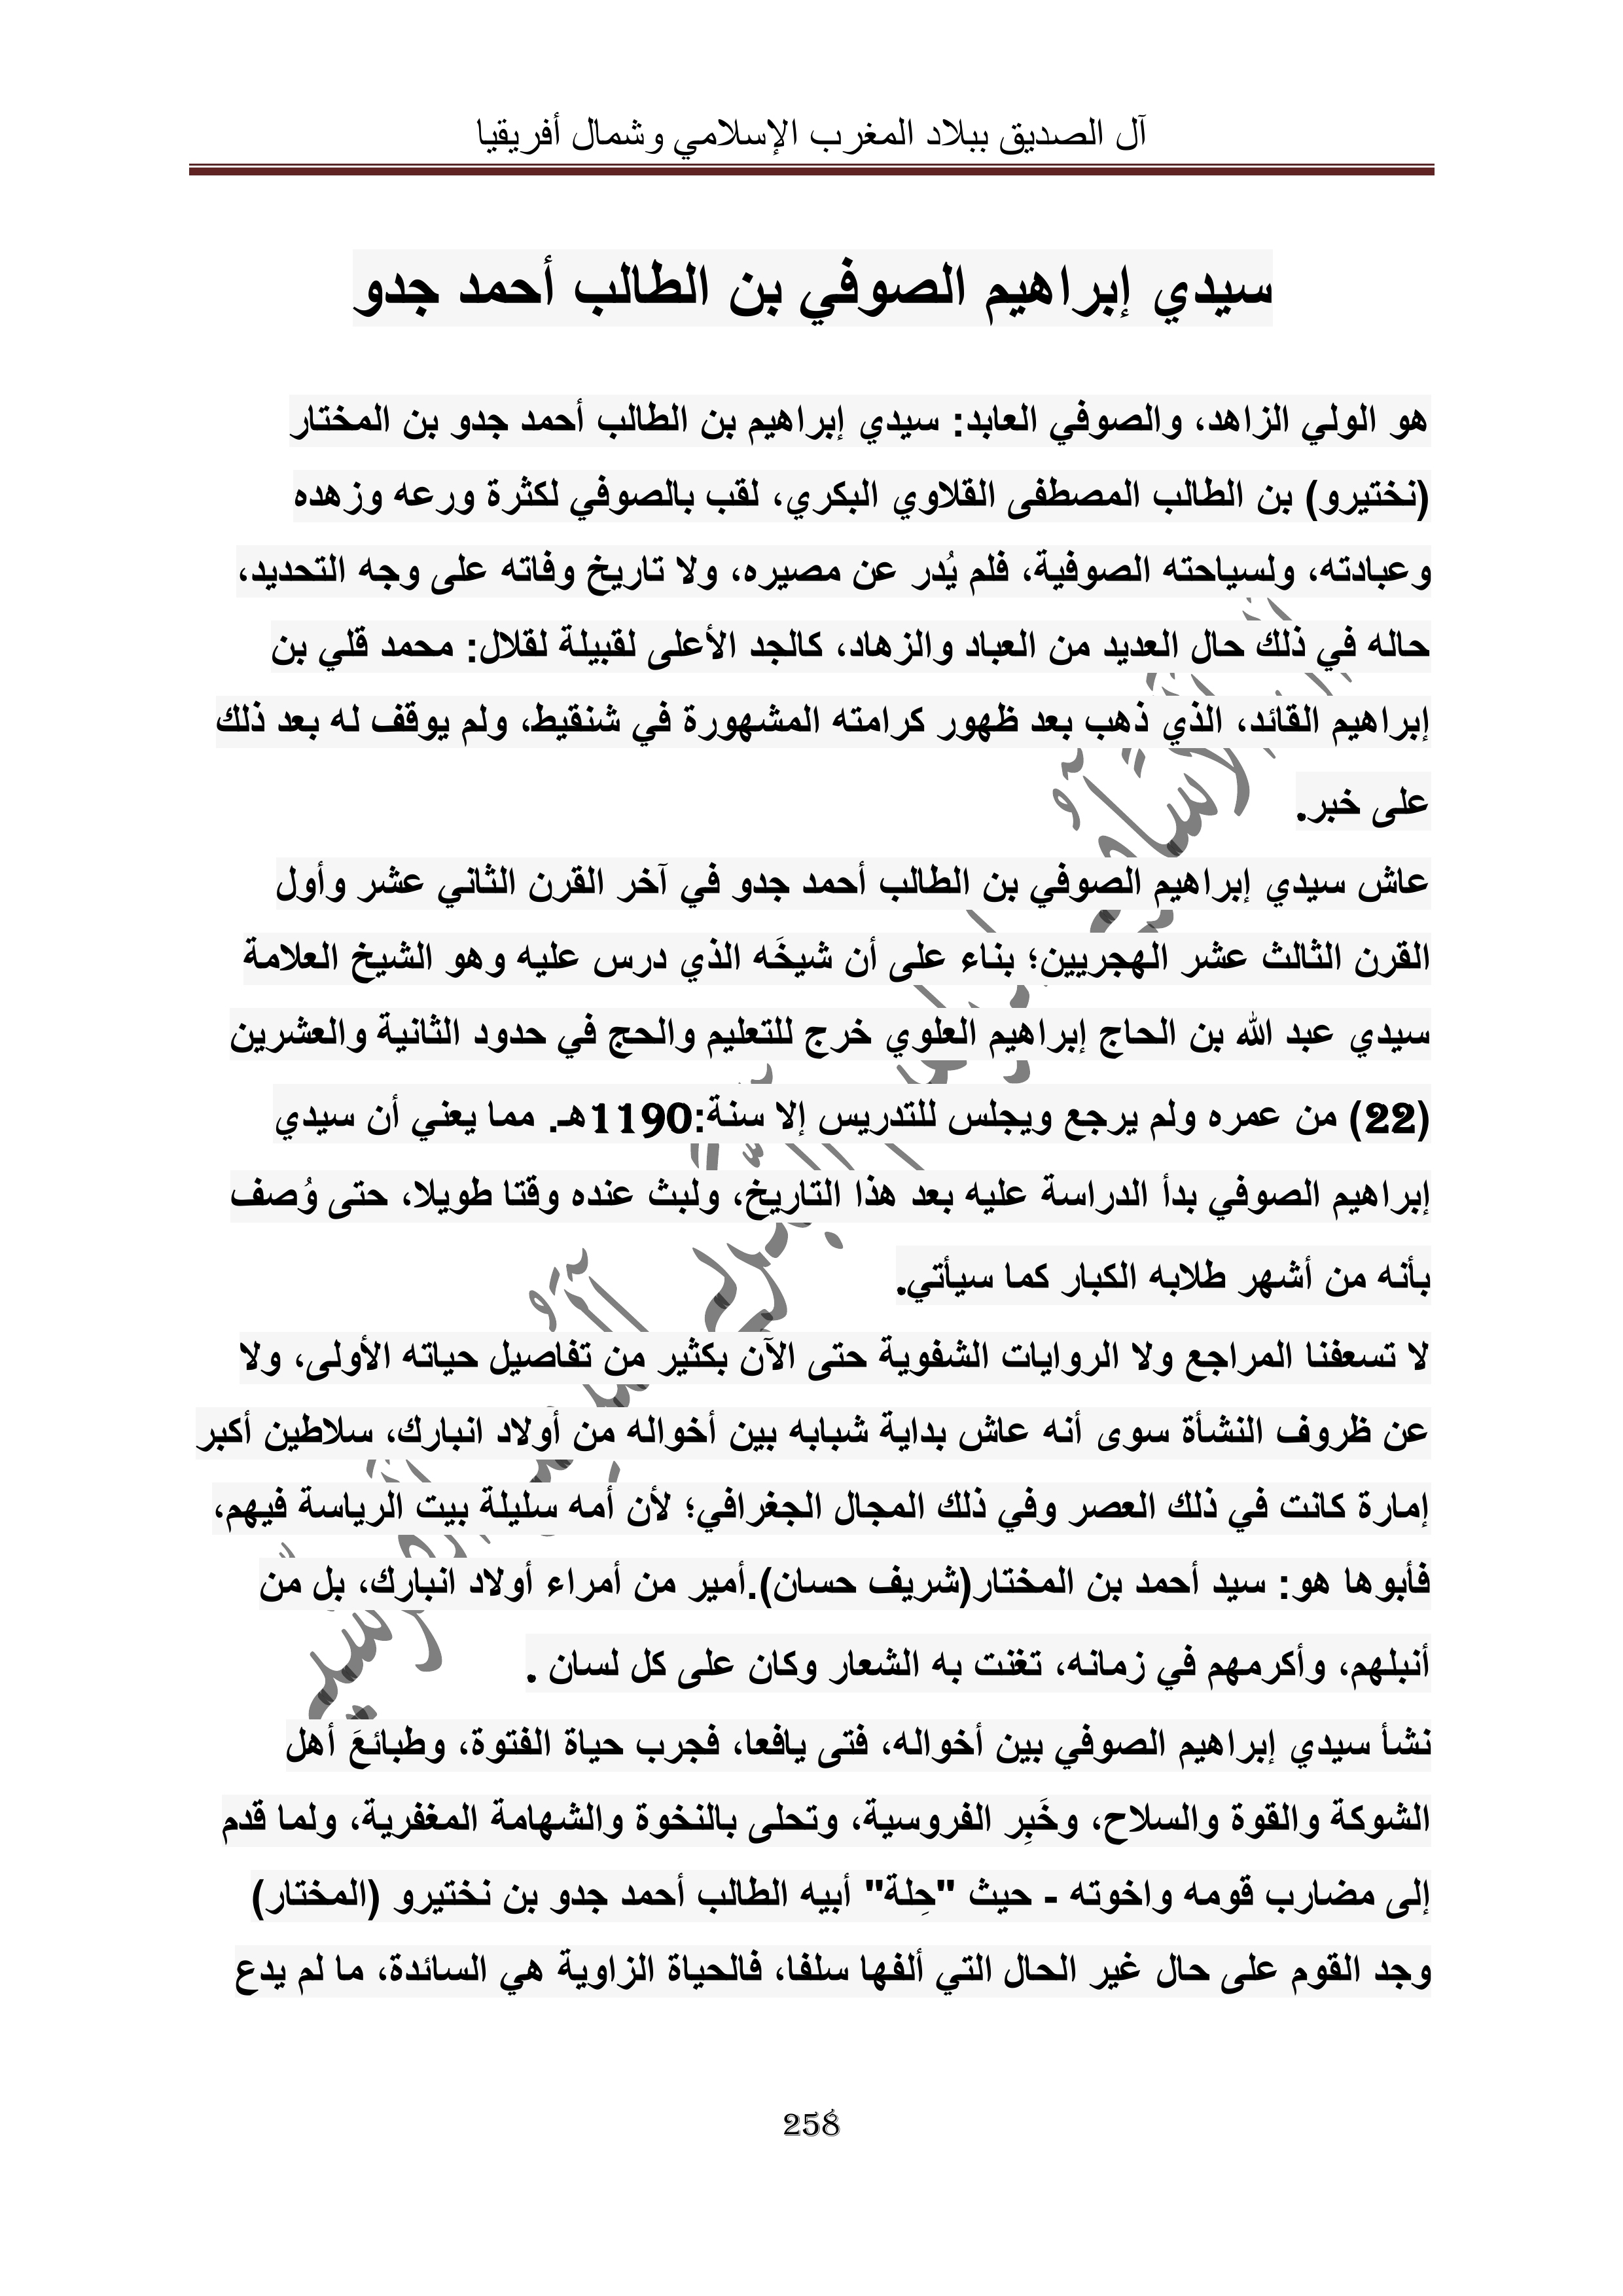 آل الصديق ببلاد المغرب الإسلامي وشمال أفريقيا
سيدي إبراهيم الصوفي بن الطالب أحمد جدو
هو الولي الزاهد، والصوفي العابد: سيدي إبراهيم بن الطالب أحمد جدو بن المختار
(نختيرو) بن الطالب المصطفى القلاوي البكري، لقب بالصوفي لكثرة ورعه وزهده
وعبادته، ولسياحته الصوفية، فلم يُدر عن مصيره، ولا تاريخ وفاته على وجه التحديد،
حاله في ذلك حال العديد من العباد والزهاد، كالجد الأعلى لقبيلة لقلال: محمد قلي بن
إبراهيم القائد، الذي ذهب بعد ظهور كرامته المشهورة في شنقيط، ولم يوقف له بعد ذلك
على خبر.
عاش سيدي إبراهيم الصوفي بن الطالب أحمد جدو في آخر القرن الثاني عشر وأول
القرن الثالث عشر الهجريين؛ بناء على أن شيخَه الذي درس عليه وهو الشيخ العلامة
سيدي عبد الله بن الحاج إبراهيم العلوي خرج للتعليم والحج في حدود الثانية والعشرين
(22) من عمره ولم يرجع ويجلس للتدريس إلا سنة:1190هـ. مما يعني أن سيدي
إبراهيم الصوفي بدأ الدراسة عليه بعد هذا التاريخ، ولبث عنده وقتا طويلا، حتى وُصف
بأنه من أشهر طلابه الكبار كما سيأتي.
لا تسعفنا المراجع ولا الروايات الشفوية حتى الآن بكثير من تفاصيل حياته الأولى، ولا
عن ظروف النشأة سوى أنه عاش بداية شبابه بين أخواله من أولاد انبارك، سلاطين أكبر
إمارة كانت في ذلك العصر وفي ذلك المجال الجغرافي؛ لأن أمه سليلة بيت الرياسة فيهم،
فأبوها هو: سيد أحمد بن المختار(شريف حسان).أمير من أمراء أولاد انبارك، بل من
أنبلهم، وأكرمهم في زمانه، تغنت به الشعار وكان على كل لسان .
نشأ سيدي إبراهيم الصوفي بين أخواله، فتى يافعا، فجرب حياة الفتوة، وطبائعَ أهل
الشوكة والقوة والسلاح، وخَبِر الفروسية، وتحلى بالنخوة والشهامة المغفرية، ولما قدم
إلى مضارب قومه واخوته - حيث "حِلة" أبيه الطالب أحمد جدو بن نختيرو (المختار)
وجد القوم على حال غير الحال التي ألفها سلفا، فالحياة الزاوية هي السائدة، ما لم يدع
258